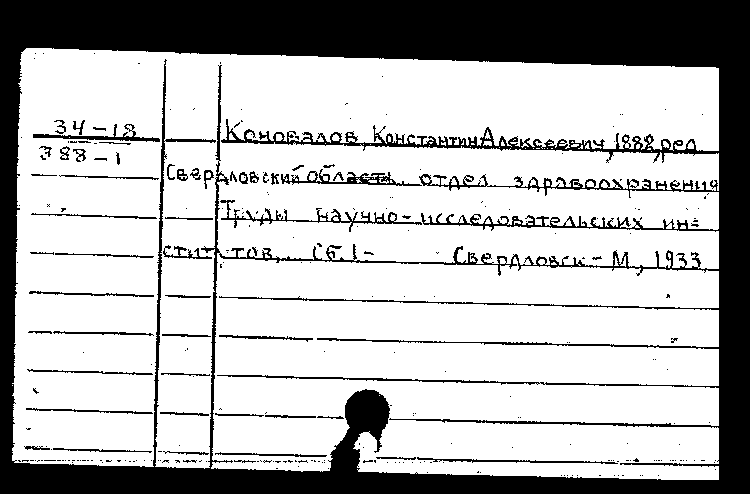 34-18
Коновалов, Константин Алексеевич, 1888, ред.
388-1
Свердловский област. отдел здравоохранения
Труды научно-исследовательских ин=
ститутов, Сб.1- Свердловск-М, 1933